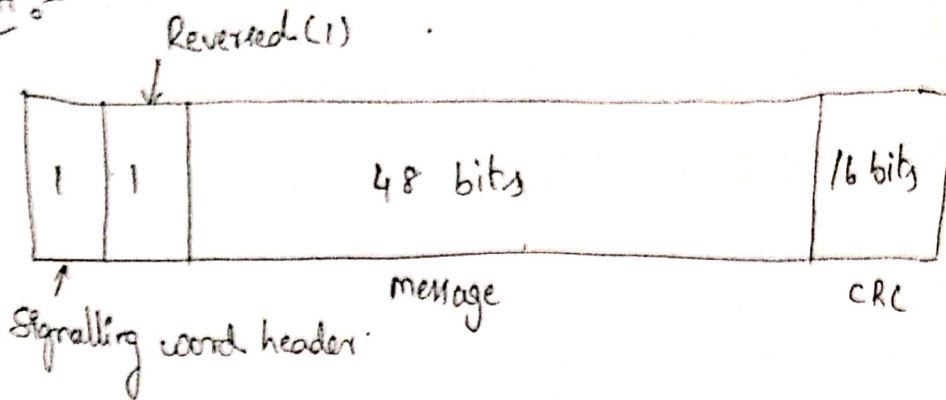 Reversed (1)
1 1 48 bits 16 bits
message CRC
Signalling word header.